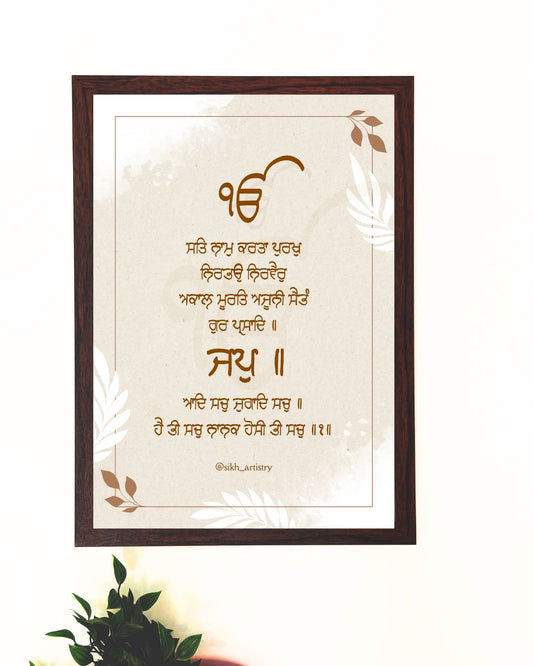 ੴ
ਸਤਿ ਨਾਮੁ ਕਰਤਾ ਪੁਰਖੁ
ਨਿਰਭਉ ਨਿਰਵੈਰੁ
ਅਕਾਲ ਮੂਰਤਿ ਅਜੂਨੀ ਸੈਭੰ
ਗੁਰ ਪ੍ਰਸਾਦਿ ॥
ਜਪੁ ॥
ਆਦਿ ਸਚੁ ਜੁਗਾਦਿ ਸਚੁ ॥
ਹੈ ਭੀ ਸਚੁ ਨਾਨਕ ਹੋਸੀ ਭੀ ਸਚੁ ॥੧॥
@sikh_artistry